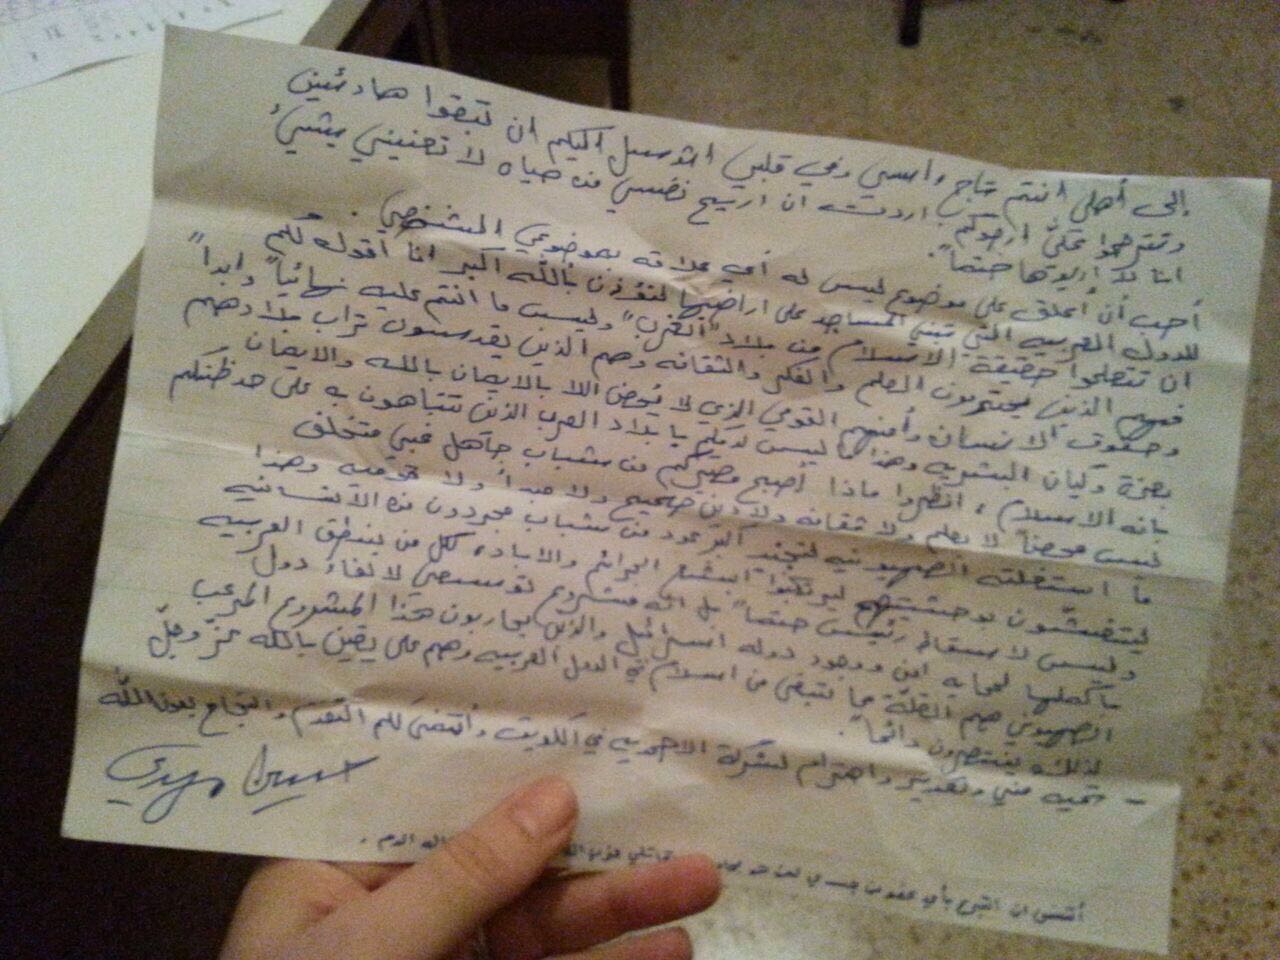 إلى أهلي انتم تاج راسي وفي قلبي اتوسل اليكم ان تبقوا هادئين
وتترحموا عليّ ارجوكم. اردت ان اريح نفسي من حياه لا تعنيني بشيئ
انا لا أُريدها حتماً.
أحب أن اعلق على موضوع ليس له أي علاقه بموضوعي الشخصي.
للدول العربيه التي تبني المساجد على اراضيها لتؤذن بالله أكبر انا أقول لكم
ان تتعلموا حقيقة الاسلام من بلاد "الغرب" وليست ما انتم عليه نهائياً وابداً
فهم الذين يحترمون العلم والفكر والثقافه وهم الذين يقدسون تراب بلادهم
وحقوق الانسان وأمنهم القومي الذي لا يُحض الا بالايمان بالله والايمان
بعزة وكيان البشريه وهذا ما ليس لديكم يا بلاد العرب الذين تتباهون به على حد ظنكم
بانه الاسلام، انظروا ماذا أصبح من شباب جاهل غبي متخلف
ليس محصناً لا بعلم ولا ثقافه ولا دين صحيح ولا مبدأ ولا قوميه وهذا
ما استغلته الصهيونيه لتجند أكبر عدد من شباب مجردون من الانسانيه
يتفننون بوحشيتهم ليرتكبوا ابشع الجرائم والاباده لكل من ينطق العربيه
وليس لاسقاط رئيس حتماً بل انه مشروع توسعي لالغاء دول
بأكملها لحمايه امن ووجود دوله اسرائيل والذين يحاربون هذا المشروع المرعب
الصهيوني هم القلّة مما تبقى من اسلام في الدول العربيه وهم على يقين بالله عزّ وجلّ
لذلك ينتصرون دائماً.
- تحيه مني وتقدير واحترام لشركة في الكويت وأتمنى لكم التقدم والنجاح بعون الله
أتمنى ان اتبرع بأي عضو من جسدي لمن هو الدم.